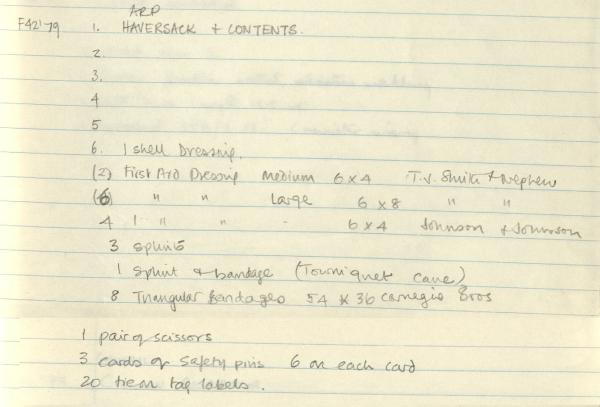 ARP
F42'79 1. HAVERSACK + CONTENTS.
2.
3.
4
5
6. 1 shell Dressing.
(2) First Aid Dressing medium 6 x 4 T.J. Smith + Nephew
(6) " " Large 6 x 8 " "
4 1 " " - 6 x 4 Johnson + Johnson
3 splints
1 splint & bandage (Tourniquet cane)
8 Triangular Bandages 54 x 36 Carnegie Bros
1 pair of scissors
3 cards of safety pins 6 on each card
20 tie on tag labels.